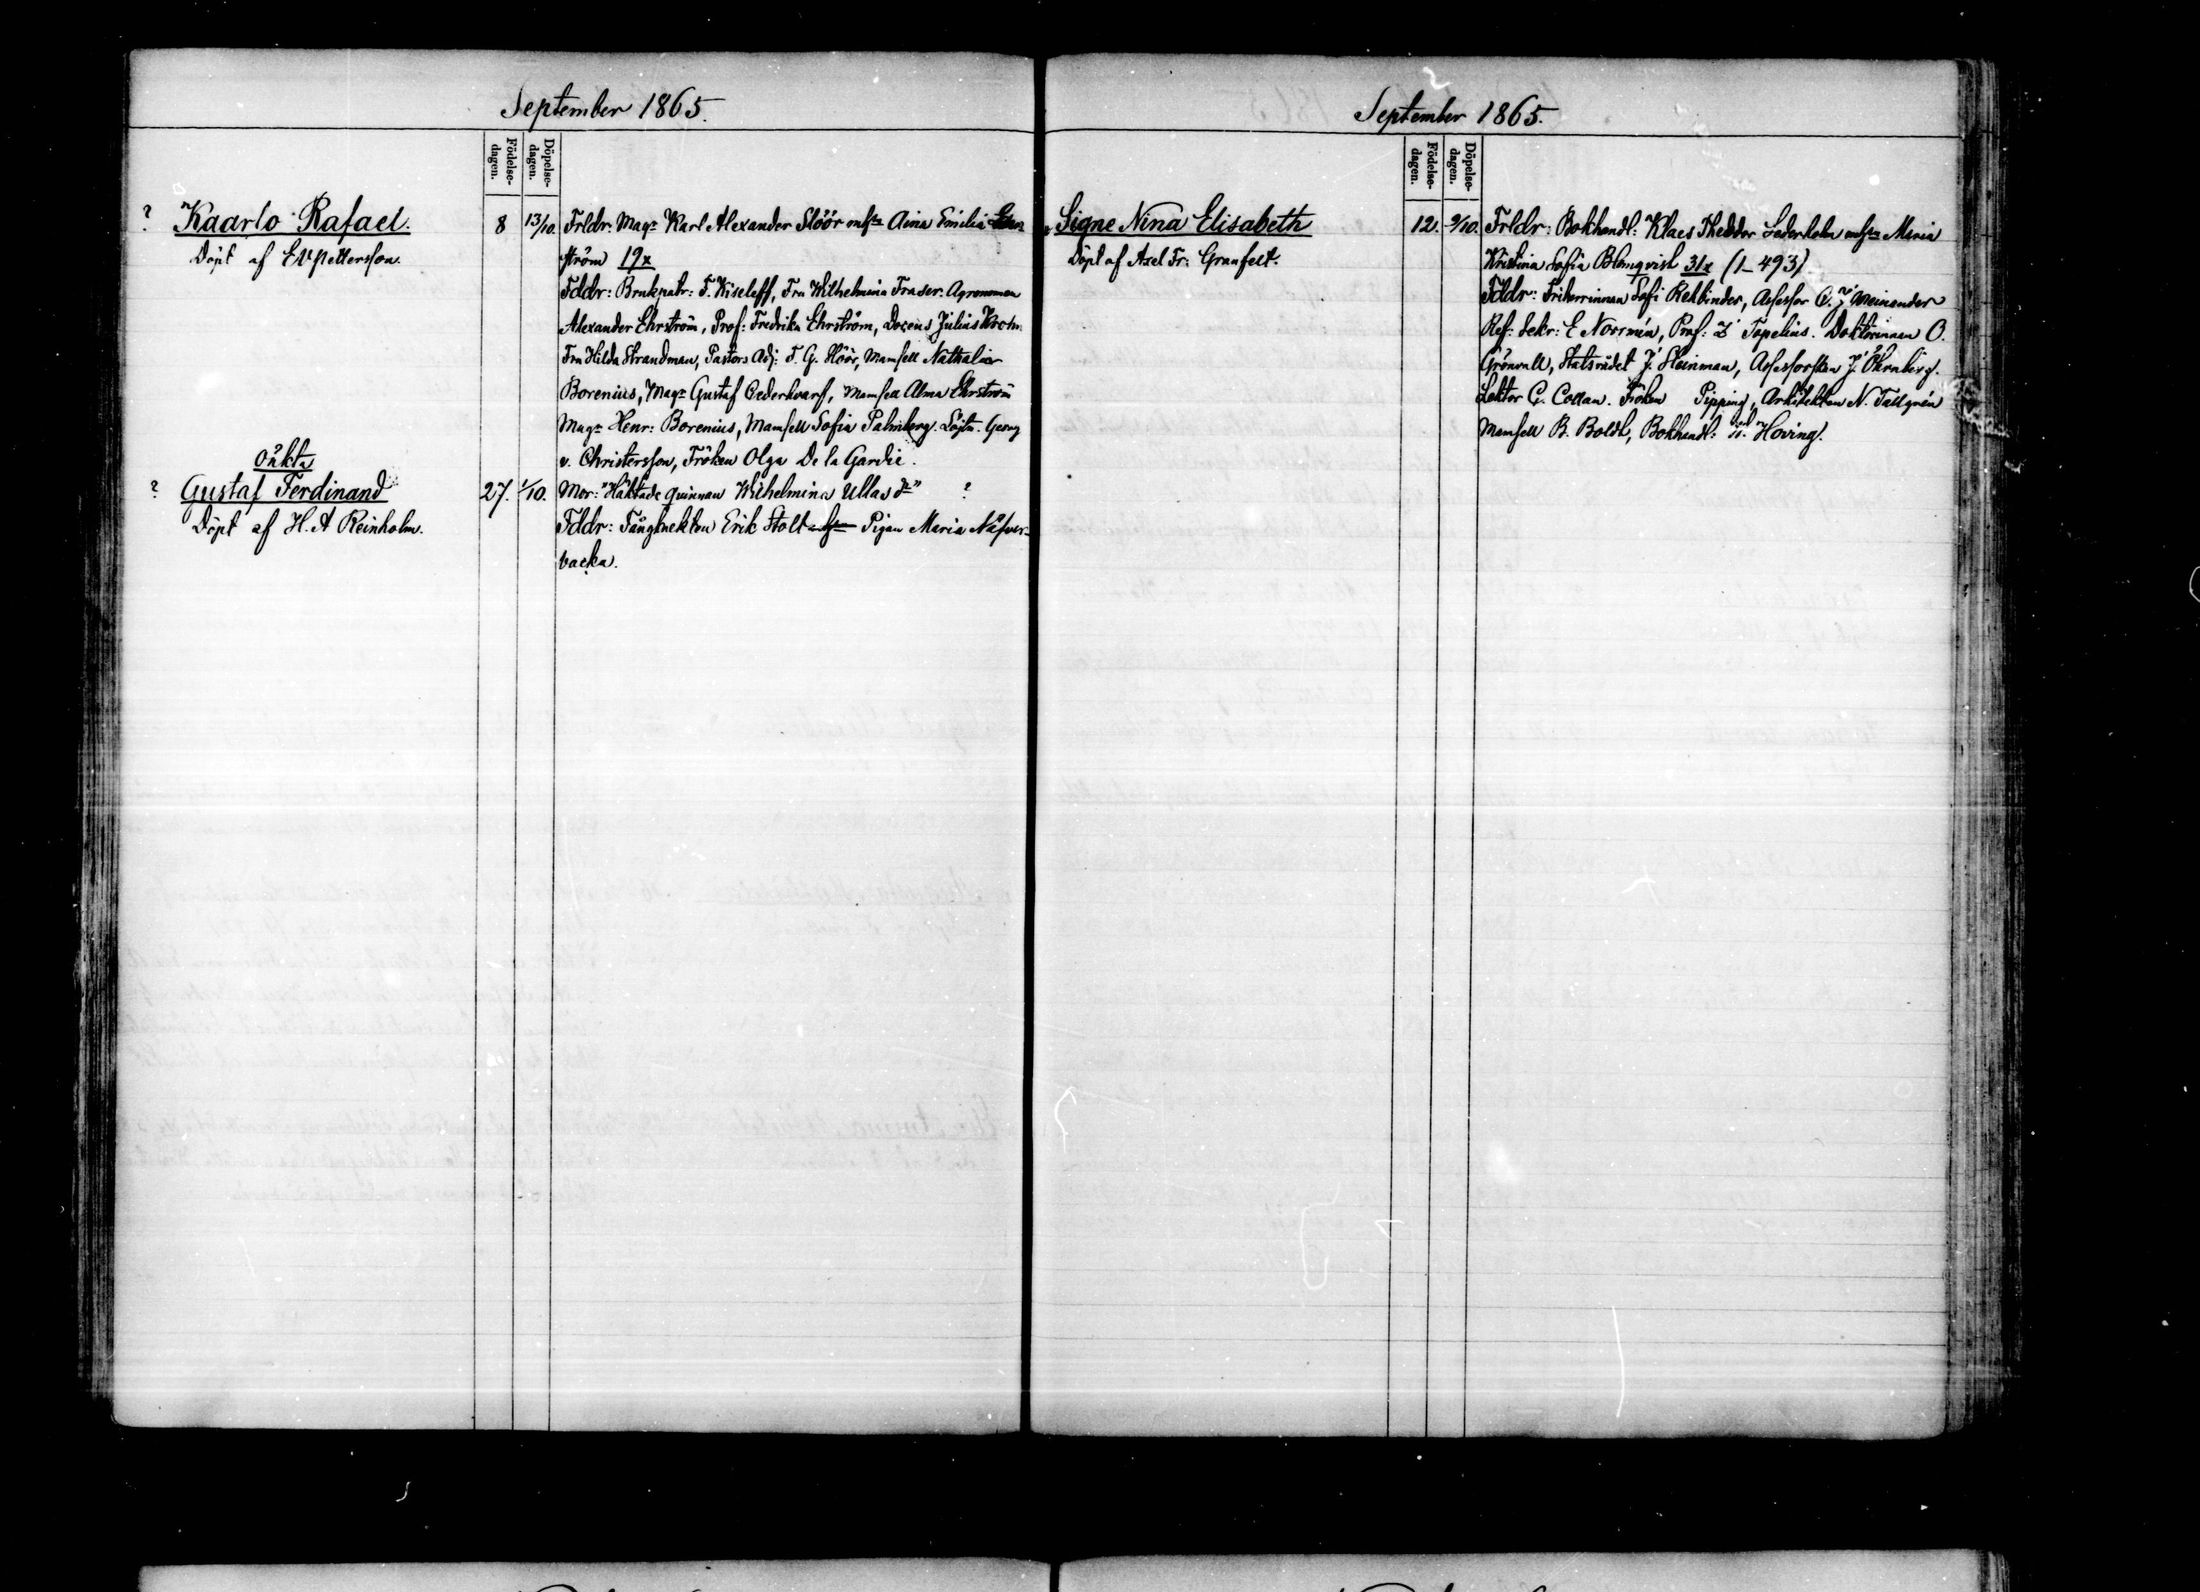 September 1865.
Födelse-
dagen.
Döpelse-
dagen.
? Kaarlo Rafael. 8 13/10. Frldr: Magr Karl Alexander Slöör m hst Aina Emilia
Döpt af E V Pettersson.
ström 19x
Fddr: Brukpatr: F. Kiseleff, Fru Wilhelmina Fraser. Agronomen
Alexander Ehrström, Prof: Fredrika Ehrström, Docens Julius Krohn
Fru Hilda Strandman, Pastors Adj: F. G. Slöör, Mamsell Nathalia
Borenius, Magr Gustaf Cederkvarf, Mamsell Alma Ehrström
Magr Henr: Borenius, Mamsell Sofia Palmberg. Löjtn. Georg
v. Christersson, Fröken Olga De la Gardie.
oäkta
? Gustaf Ferdinand 27. 1/10. Mor: "Häktade qvinnan Wilhelmina Ullas dr" ?
Döpt af H. A Reinholm.
Fddr: Fångknekten Erik Stolt Pigan Maria Näfver-
backa.
September 1865.
Födelse-
dagen.
Döpelse-
dagen.
Signe Nina Elisabeth 12. 9/10. Frldr: Bokhandl: Klaes Theodor Sederholm m hst Maria
Döpt af Axel Fr: Granfelt.
Kristina Sofia Blomqvist 31x (1–493)
Fddr: Friherrinnan Sofi Rehbinder, Assessor C. J. Meinander
Ref: Sekr: E Norrmén, Prof: Z Topelius. Doktorinnan O.
Grönvall, Statsrådet J. Steinman, Assessorskan J. Öhrnberg.
Lektor C. Collan. Fröken Pipping, Arkitekten N. Tallgrén
Mamsell B. Boldt, Bokhandl: Hoving.